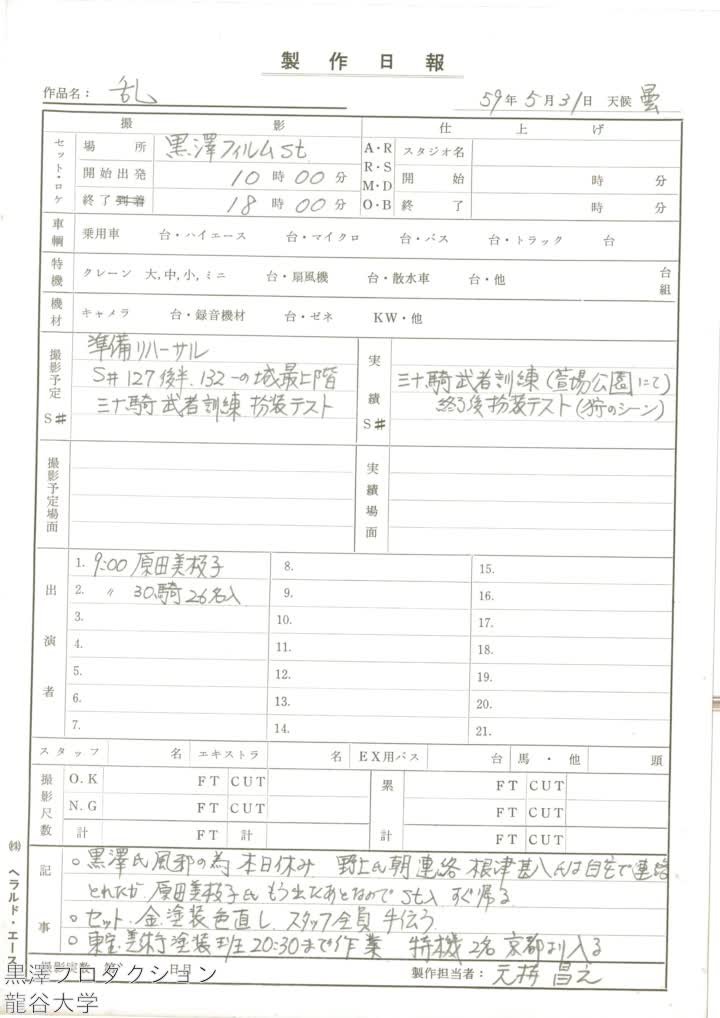 製作日報
作品名： 乱
59年5月31日 天候 曇
撮影
仕上げ
セット・ロケ
場所 黒澤フィルムSt.
開始出発 10時00分
終了到着 18時00分
A・R
R・S
M・D
O・B
スタジオ名
開始 時 分
終了 時 分
車輌 乗用車 台・ハイエース 台・マイクロ 台・バス 台・トラック 台
特機 クレーン 大,中,小,ミニ 台・扇風機 台・散水車 台・他 台組
機材 キャメラ 台・録音機材 台・ゼネ KW・他
撮影予定 S#
準備リハーサル
S#127後半.132 一の城最上階
三十騎武者訓練 扮装テスト
実績 S#
三十騎武者訓練(萱場公園にて)
終了後扮装テスト(狩のシーン)
撮影予定場面
実績場面
出演者
1. 9:00 原田美枝子
2. 〃 30騎 26名入
3.
4.
5.
6.
7.
8.
9.
10.
11.
12.
13.
14.
15.
16.
17.
18.
19.
20.
21.
スタッフ 名 エキストラ 名 EX用バス 台 馬・他 頭
撮影尺数
O.K FT CUT
N.G FT CUT
計 FT 計
累計
FT CUT
FT CUT
FT CUT
記事
○黒澤氏風邪の為 本日休み 野上氏朝連絡 根津甚八氏は自宅で連絡
とれたが 原田美枝子氏 もう出たあとなので St入 すぐ帰る
○セット.金塗装色直し.スタッフ全員 手伝う.
○東宝美術塗装班20:30まで作業 特機2名 京都より入る
撮影実数 第 日目
製作担当者：元持昌之
㈱ヘラルド・エース
黒澤プロダクション
龍谷大学